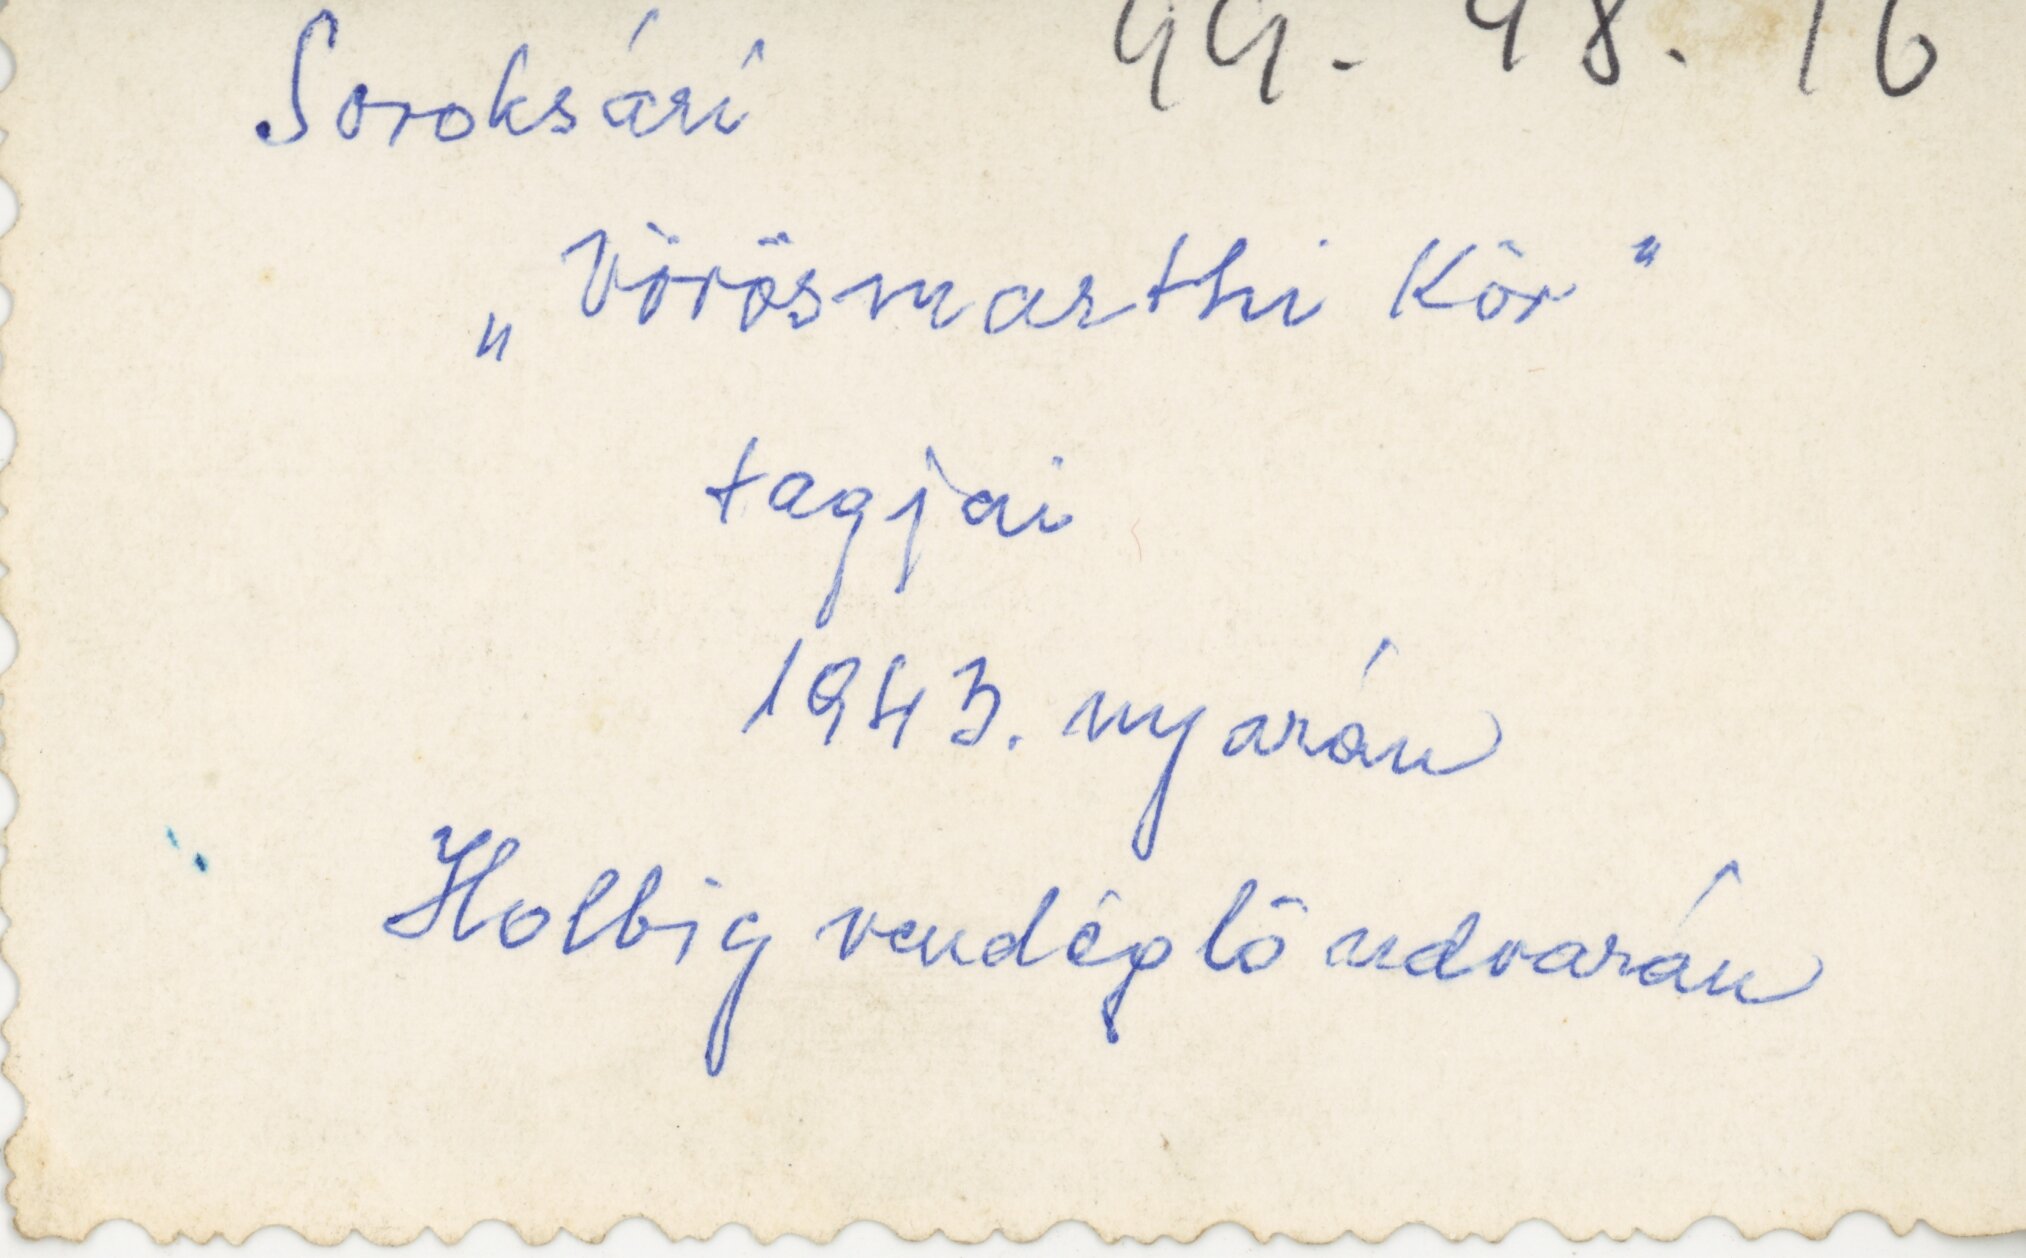 Soroksári 99. 98. 16
„Vörösmarthi Kör"
tagjai
1943. nyarán
Holbig vendéglő udvarán